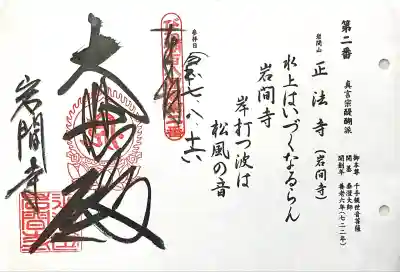 第二番
真言宗醍醐派
御本尊 千手観世音菩薩
開基 泰澄大師
開創年 養老六年(七二二年)
岩間山 正法寺(岩間寺)
水上はいづくなるらん
岩間寺
岸打つ波は
松風の音
参拝日
奉拝
大悲殿
岩間寺